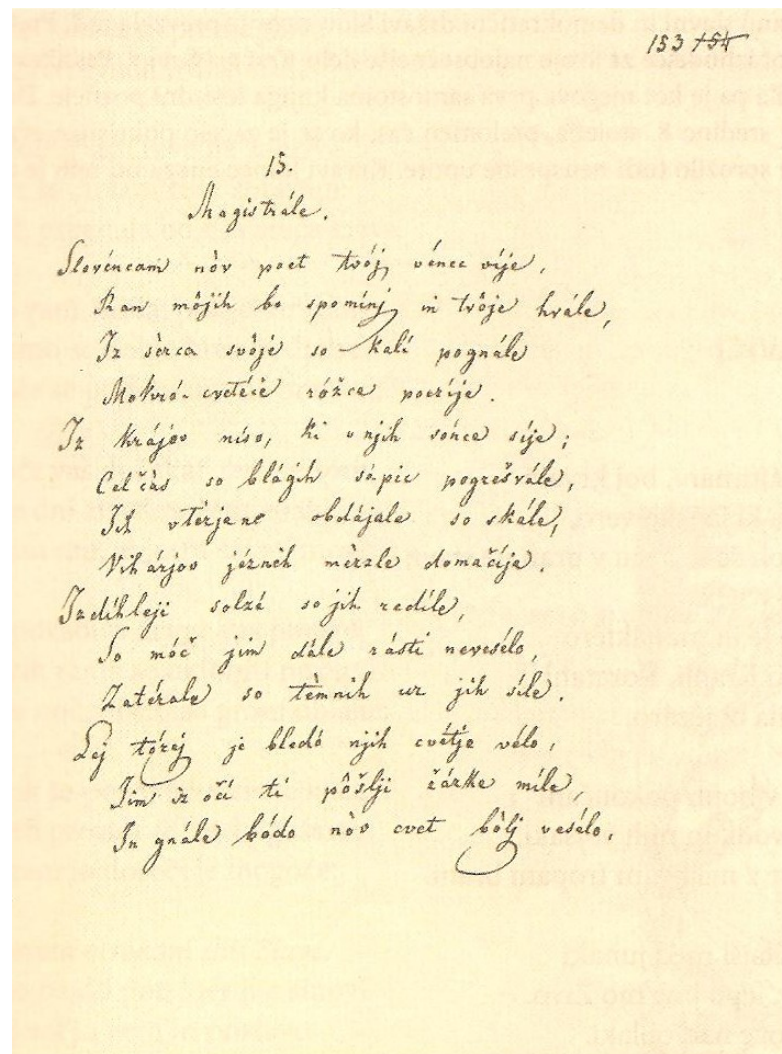 153 154
15.
Magistrále.
Slovéncam nòv poet tvój vénec víje,
Ran môjih bo spomínj in tvôje hvále,
Iz sèrca svôje so kalí pognále
Mokró-cvetéče róžce poezíje.
Iz krájov níso, ki v njih sónce síje;
Cel čàs so blágih sápic pogrešvále,
Jih vtèrjene obdájale so skále,
Vihárjov jéznih mèrzle domačíje.
Izdíhleji solzé so jih redíle,
So móč jim dále rásti nevesélo,
Zatérale so tèmnih ur jih síle.
Lej tórej je bledó njih cvétje vélo,
Jim iz očí ti pôšlji žárke míle,
In gnále bódo nòv cvet bòlj vesélo.